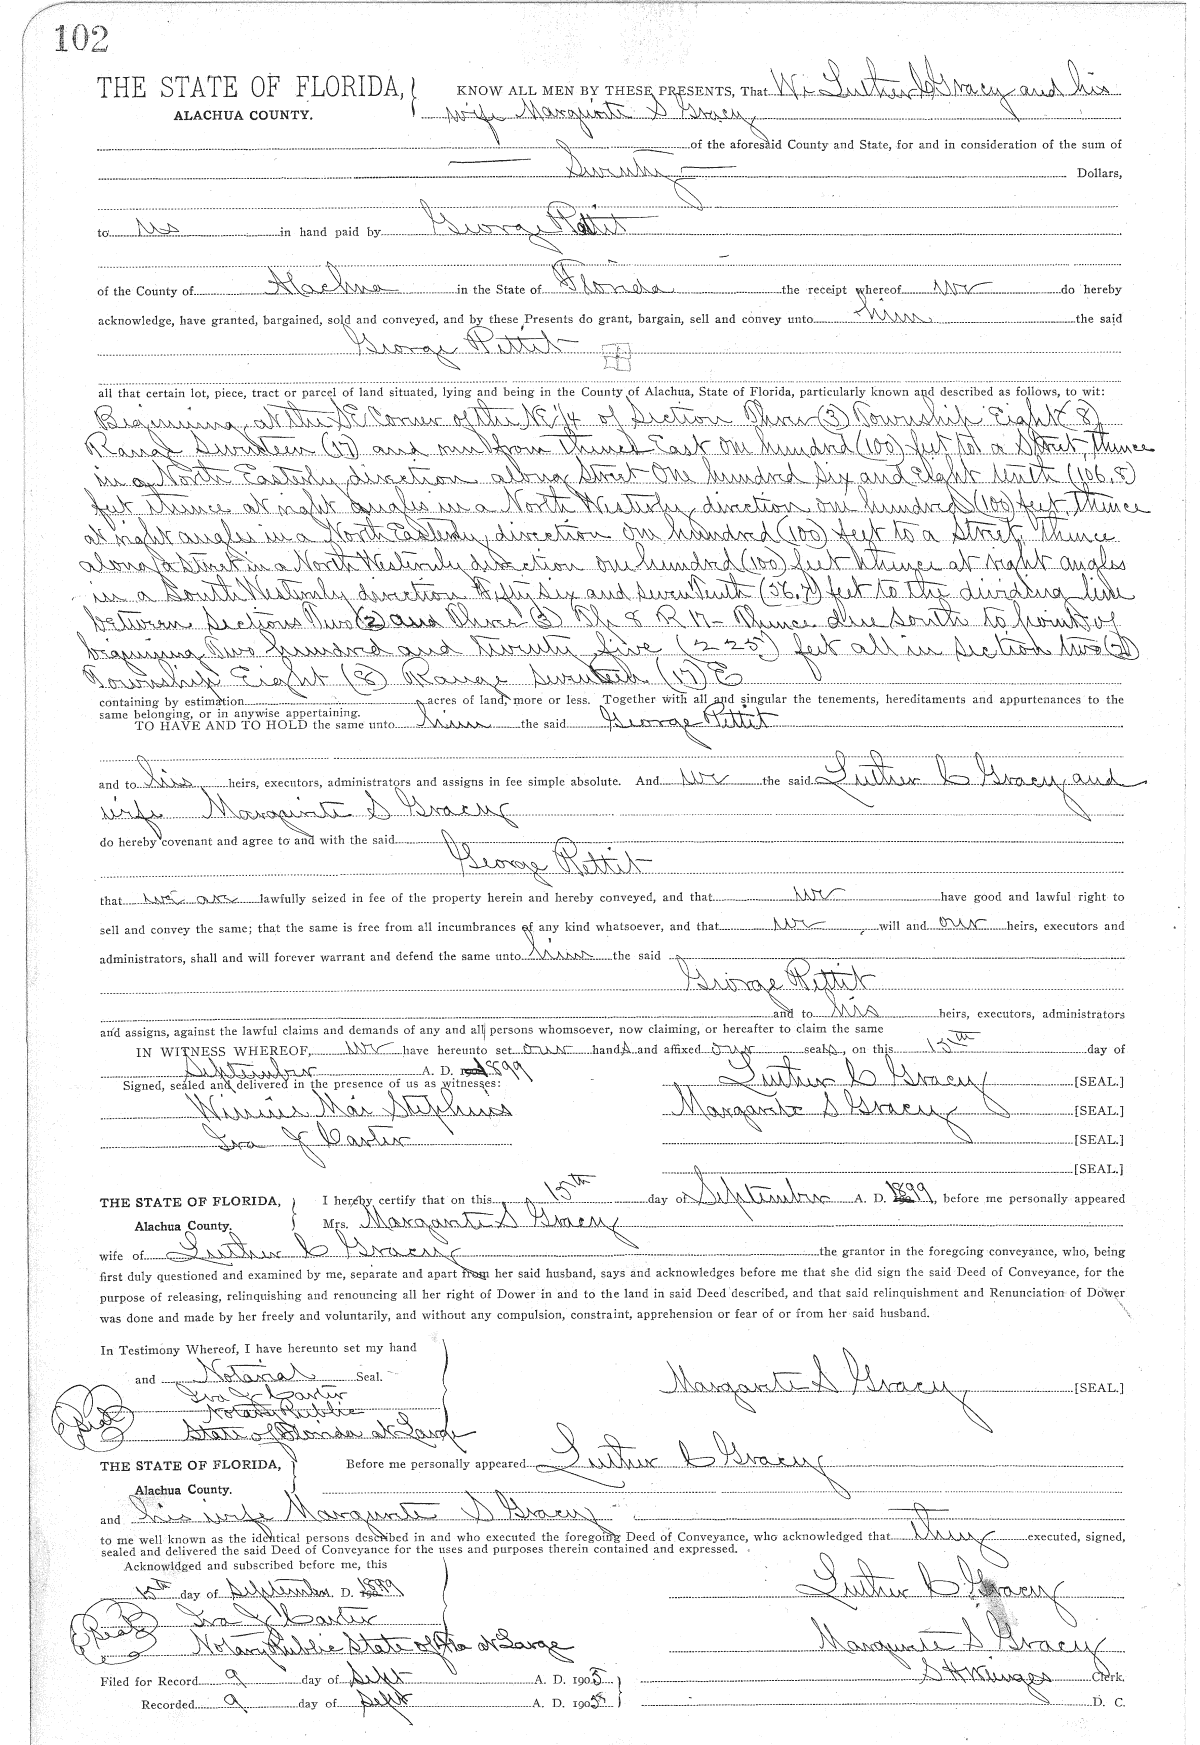 102
THE STATE OF FLORIDA, KNOW ALL MEN BY THESE PRESENTS, That We Luther C Gracy and his
ALACHUA COUNTY. wife Marguirite S Gracy
of the aforesaid County and State, for and in consideration of the sum of
Seventy Dollars,
to us in hand paid by George Pettit
of the County of Alachua in the State of Florida the receipt whereof we do hereby
acknowledge, have granted, bargained, sold and conveyed, and by these Presents do grant, bargain, sell and convey unto him the said
George Pettit
all that certain lot, piece, tract or parcel of land situated, lying and being in the County of Alachua, State of Florida, particularly known and described as follows, to wit:
Beginning at the SE Corner of the NE/4 of Section Three (3) Township Eight 8)
Range Seventeen (17) and run from thence East One hundred (100) feet to a Street, thence
in a North Easterly direction along Street One hundred Six and Eight tenth (106.8)
feet thence at right angles in a North Westerly direction one hundred (100) feet, thence
at right angles in a North Easterly direction one hundred (100) feet to a Street, thence
along a Street in a North Westerly direction one hundred (100) feet thence at right angles
in a South Westerly direction Fifty Six and seven tenth (56.7) feet to the dividing line
between Sections Two (2) and Three (3) Tp 8 R 17 - Thence due south to point of
beginning Two hundred and twenty five (225) feet all in section two (2)
Township Eight (8) Range Seventeen (17) E
containing by estimation acres of land, more or less. Together with all and singular the tenements, hereditaments and appurtenances to the
same belonging, or in anywise appertaining.
TO HAVE AND TO HOLD the same unto him the said George Pettit
and to his heirs, executors, administrators and assigns in fee simple absolute. And we the said Luther C Gracy and
wife Marguirite S Gracy
do hereby covenant and agree to and with the said
George Pettit
that we are lawfully seized in fee of the property herein and hereby conveyed, and that we have good and lawful right to
sell and convey the same; that the same is free from all incumbrances of any kind whatsoever, and that we, will and our heirs, executors and
administrators, shall and will forever warrant and defend the same unto him the said
George Pettit
and to his heirs, executors, administrators
and assigns, against the lawful claims and demands of any and all persons whomsoever, now claiming, or hereafter to claim the same
IN WITNESS WHEREOF, we have hereunto set our hands and affixed our seals, on this 15th day of
September A. D. 1899
Signed, sealed and delivered in the presence of us as witnesses: Luther C Gracy [SEAL.]
Winnie Mai Stephens Margarite S Gracy [SEAL.]
Ira J Carter [SEAL.]
[SEAL.]
THE STATE OF FLORIDA, I hereby certify that on this 15th day of September A. D. 1899, before me personally appeared
Alachua County. Mrs. Margarite S Gracy
wife of Luther C Gracy the grantor in the foregoing conveyance, who, being
first duly questioned and examined by me, separate and apart from her said husband, says and acknowledges before me that she did sign the said Deed of Conveyance, for the
purpose of releasing, relinquishing and renouncing all her right of Dower in and to the land in said Deed described, and that said relinquishment and Renunciation of Dower
was done and made by her freely and voluntarily, and without any compulsion, constraint, apprehension or fear of or from her said husband.
In Testimony Whereof, I have hereunto set my hand
and Notarial Seal. Margarite S Gracy [SEAL.]
Ira J Carter
Seal Notary Public
State of Florida at Large
THE STATE OF FLORIDA, Before me personally appeared Luther C Gracy
Alachua County.
and his wife Margurite S Gracy
to me well known as the identical persons described in and who executed the foregoing Deed of Conveyance, who acknowledged that they executed, signed,
sealed and delivered the said Deed of Conveyance for the uses and purposes therein contained and expressed.
Acknowldged and subscribed before me, this
15th day of September A. D. 1899 Luther C Gracy
Seal Ira J Carter
Notary Public State of Fla at Large Margurite S Gracy
Filed for Record 9 day of Sept A. D. 1905 S H Wienges Clerk.
Recorded 9 day of Sept A. D. 1905 D. C.